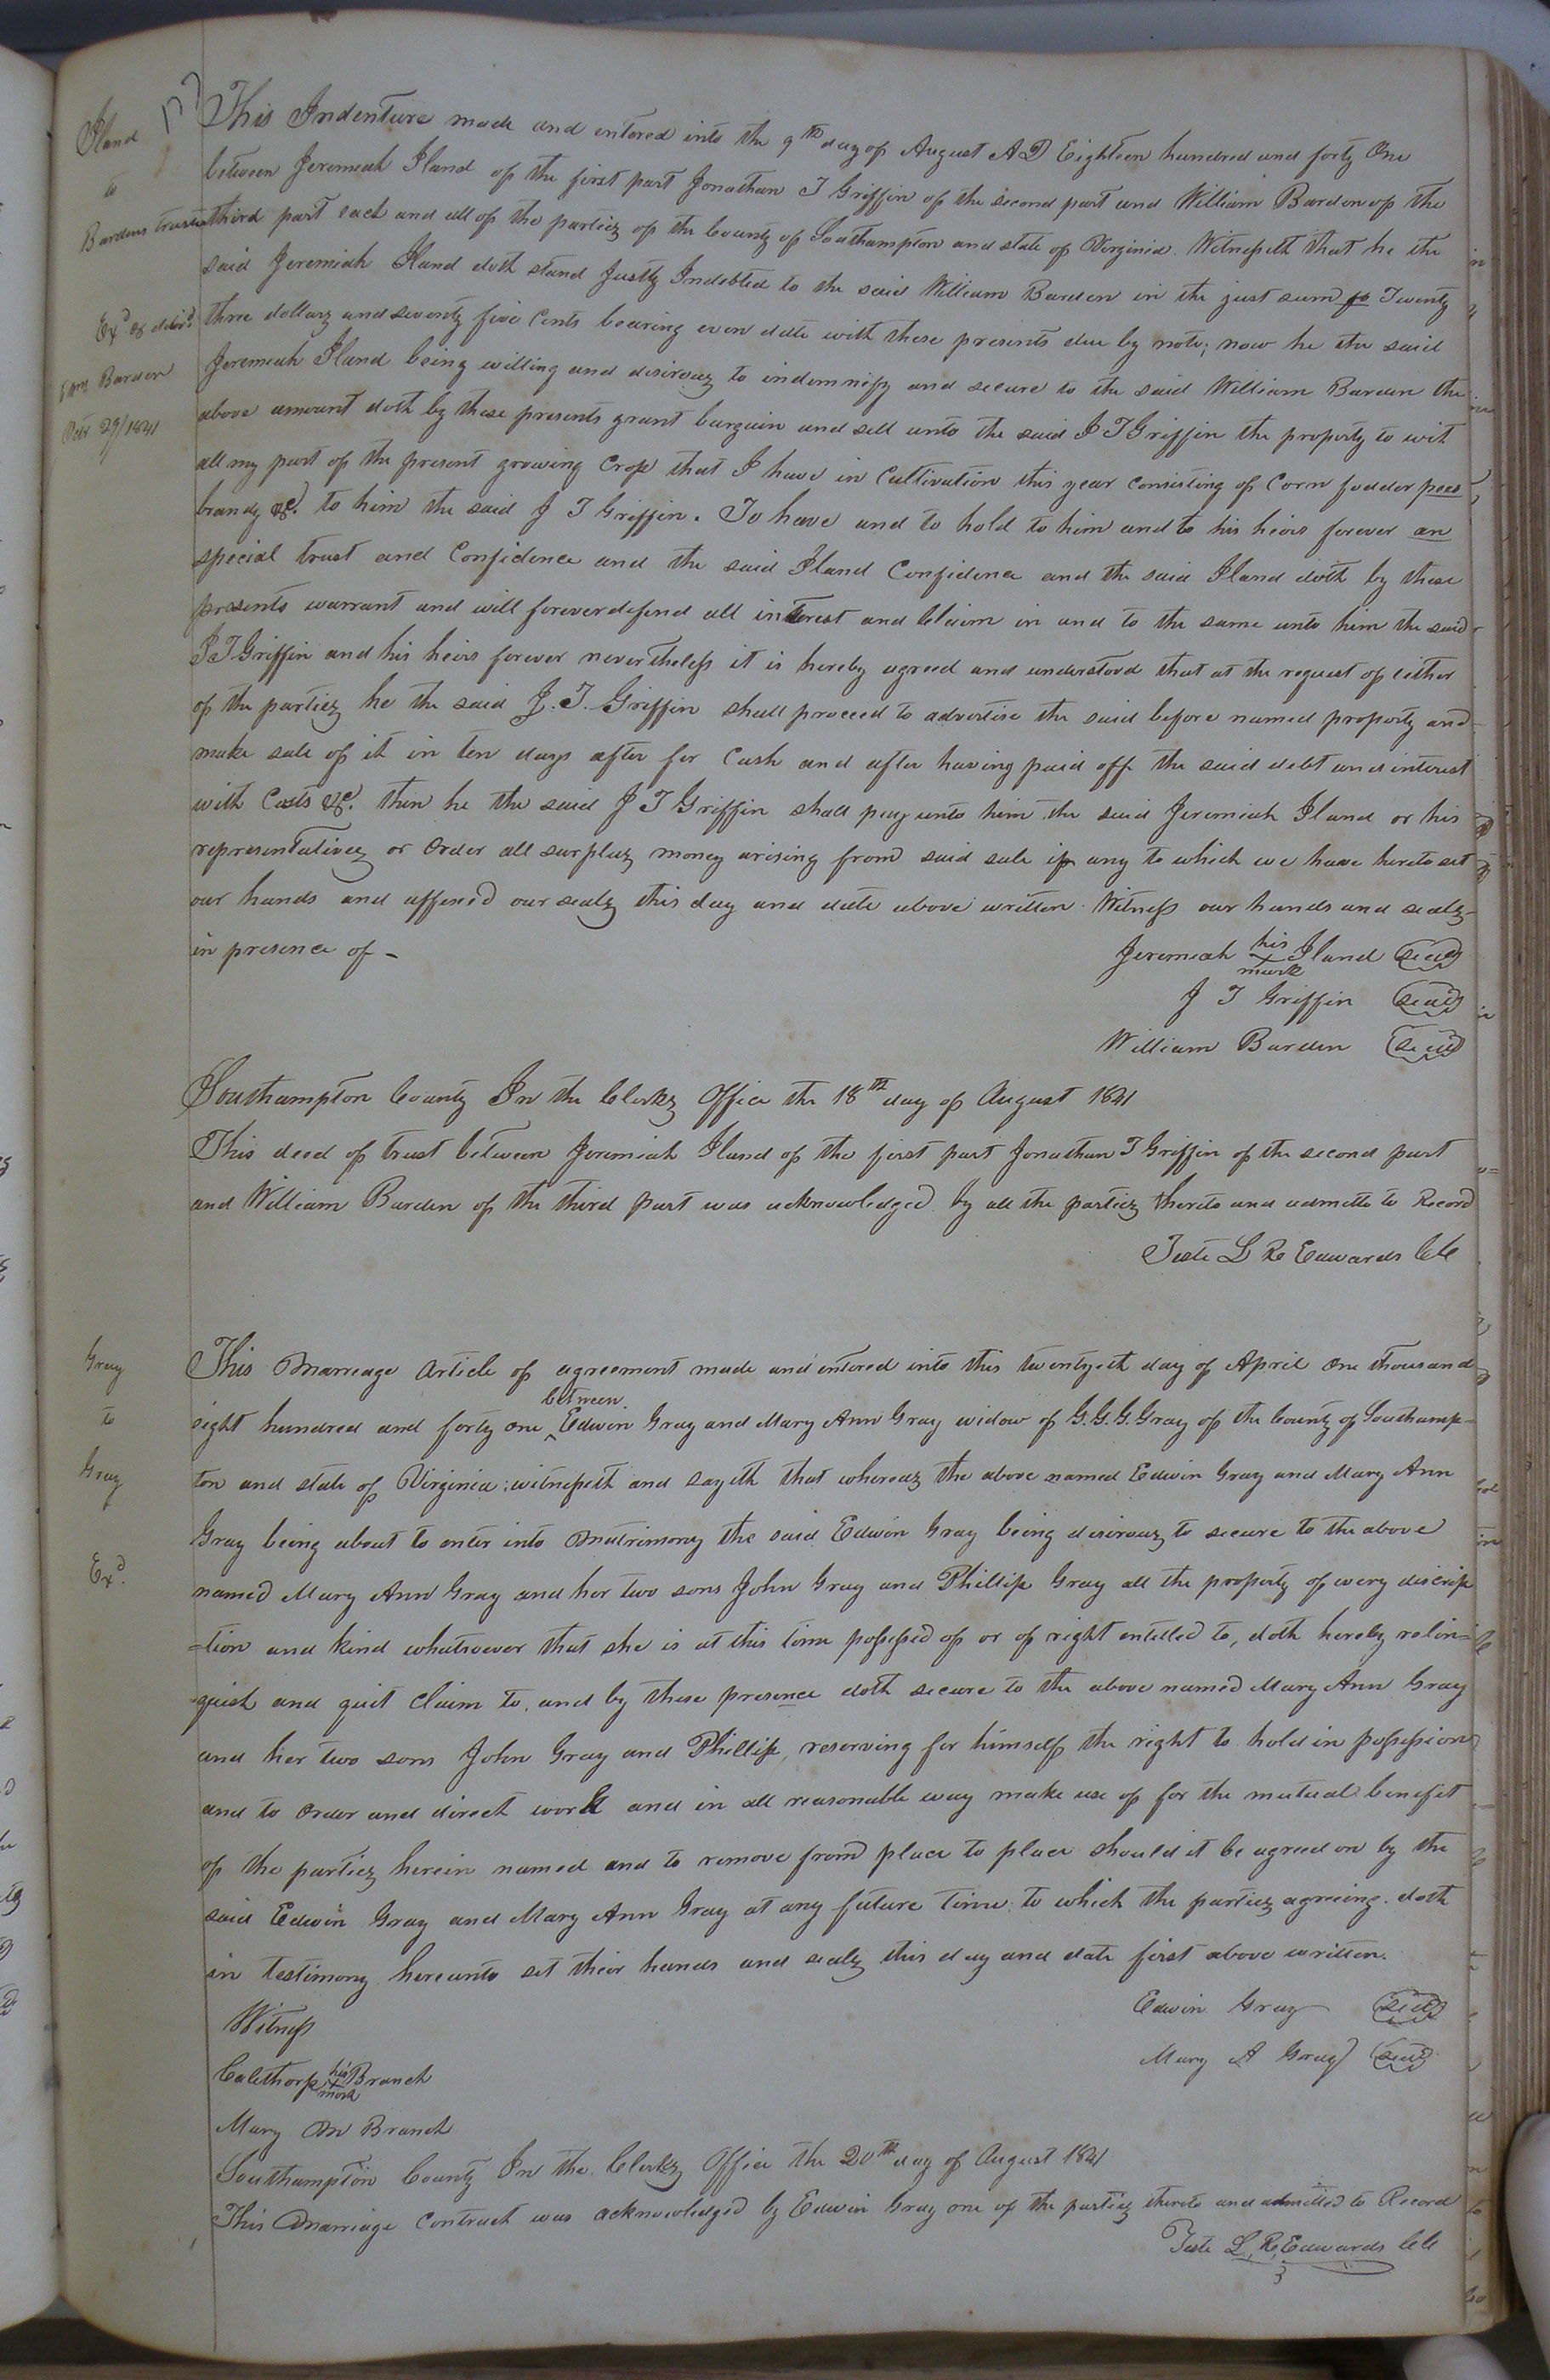 Iland
to
Bardens trustee
Exd & delivd
Wm Barden
Octr 29/1841
This Indenture made and entered into the 9th day of August A D Eighteen hundred and forty One
between Jeremiah Iland of the first part Jonathan T Griffin of the second part and William Barden of the
third part each and all of the parties of the County of Southampton and state of Virginia. Witnesseth that he the
said Jeremiah Iland doth stand Justly Indebted to the said William Barden in the just sum fo Twenty
three dollars and seventy five Cents bearing even date with these presents due by note; now he the said
Jeremiah Iland being willing and desirous to indemnify and secure to the said William Barden the
above amount doth by these presents grant bargain and sell unto the said J T Griffin the property to wit
all my part of the present growing Crop that I have in Cultivation this year consisting of Corn fodder peas
brandy &c. to him the said J T Griffin. To have and to hold to him and to his heirs forever an
special trust and Confidence and the said Iland Confidence and the said Iland doth by these
presents warrant and will forever defend all interest and Claim in and to the same unto him the said
J T Griffin and his heirs forever nevertheless it is hereby agreed and understood that at the request of either
of the parties he the said J. T. Griffin shall proceed to advertise the said before named property and
make sale of it in ten days after for Cash and after having paid off the said debt and interest
with Costs &c. then he the said J T Griffin shall pay unto him the said Jeremiah Iland or his
representatives or Order all surplus money arising from said sale if any to which we have hereto set
our hands and affixed our seals this day and date above written. Witness our hands and seals
in presence of -
Jeremiah his Iland seal
mark
J T Griffin seal
William Barden seal
Southampton County In the Clerks Office the 18th day of August 1841
This deed of trust between Jeremiah Iland of the first part Jonathan T Griffin of the second part
and William Barden of the third part was acknowledged by all the parties thereto and admitto to Record
Teste L R Edwards CC
Gray
to
Gray
Exd.
This Marriage Article of agreement made and entered into this twentyeth day of April One thousand
between
eight hundred and forty one ^ Edwin Gray and Mary Ann Gray widow of G. G. G. Gray of the County of Southamp-
ton and state of Virginia: witnesseth and sayeth that whereas the above named Edwin Gray and Mary Ann
Gray being about to enter into Matrimony the said Edwin Gray being desirous to secure to the above
named Mary Ann Gray and her two sons John Gray and Phillip Gray all the property of every discrip
=tion and kind whatsoever that she is at this time possessed of or of right entitled to, doth hereby relin=
quish and quit claim to, and by these presence doth secure to the above named Mary Ann Gray
and her two sons John Gray and Phillip, reserving for himself the right to hold in possession
and to Order and direct work and in all reasonable way make use of for the mutual benefit
of the parties herein named and to remove from place to place should it be agreed on by the
said Edwin Gray and Mary Ann Gray at any future time: to which the parties agreeing. doth
in testimony hereunto set their hands and seals this day and date first above written.
Edwin Gray seal
Witness
Mary A Gray seal
Calethorp his Branch
mark
Mary M Branch
Southampton County In the Clerks Office the 20th day of August 1841
This Marriage Contract was acknowledged by Edwin Gray one of the parties thereto and admitted to Record
Teste L, R, Edwards CC